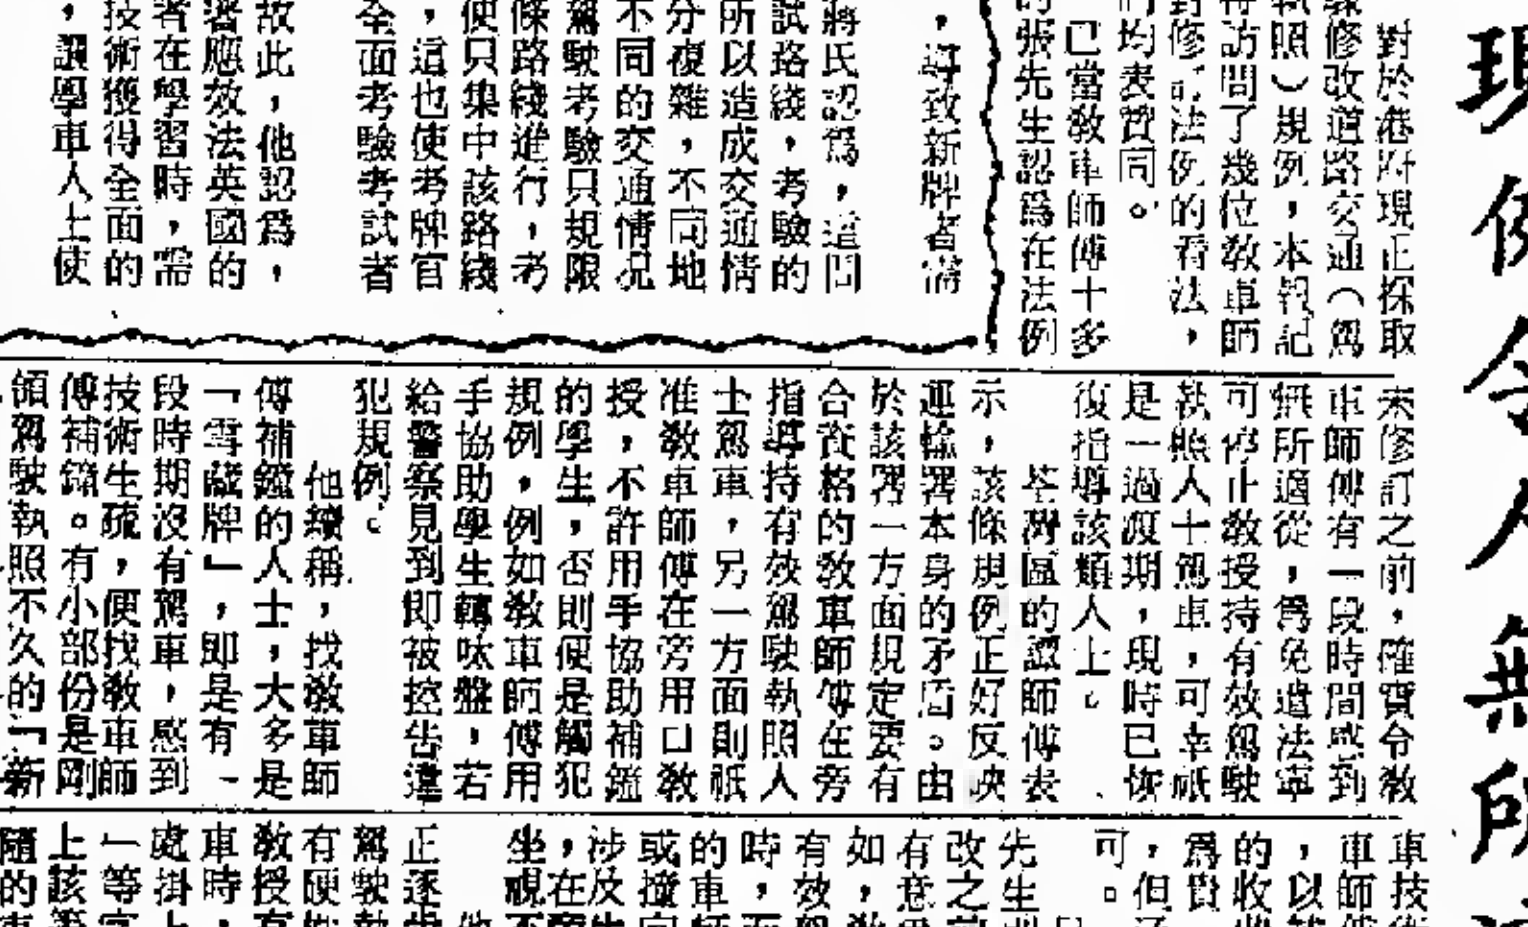 現例令人無所
對於港府現正採取
修改道路交通（駕
執照）規例，本報記
訪問了幾位教車師
修訂法例的看法，
均表贊同。
已當教車師傅十多
張先生認爲在法例
，導致新牌者需
蔣氏認爲，這問
試路綫，考驗的
所以造成交通情
分複雜，不同地
不同的交通情況
駕駛考驗只規限
條路綫進行，考
便只集中該路綫
，這也使考牌官
全面考驗考試者
故此，他認爲，
署應效法英國的
者在學習時，需
技術獲得全面的
，讓學車人士使
未修訂之前，確實令教
車師傅有一段時間感到
無所適從，爲免遭法寧
可停止教授持有效駕駛
執照人士駕車，可幸祇
是一過渡期，現時已恢
復指導該類人士。
荃灣區的譚師傅表
示，該條規例正好反映
運輸署本身的矛盾。由
於該署一方面規定要有
合資格的教車師傅在旁
指導持有效駕駛執照人
士駕車，另一方面則祇
准教車師傅在旁用口教
授，不許用手協助補鐘
的學生，否則便是觸犯
規例，例如教車師傅用
手協助學生轉呔盤，若
給警察見到即被控告違
犯規例。
他續稱，找教車師
傅補鐘的人士，大多是
「雪藏牌」，即是有一
段時期沒有駕車，感到
技術生疏，便找教車師
傅補鐘。有小部份是剛
領駕駛執照不久的「新
車技
車師
，以
的收
爲貴
，但
可。
先生
改之
有意
如，
有效
時，
的車
或撞
涉及
，在
坐視
正逐
駕駛
有硬
教授
車時，
處掛上
」等字
上該
隨的